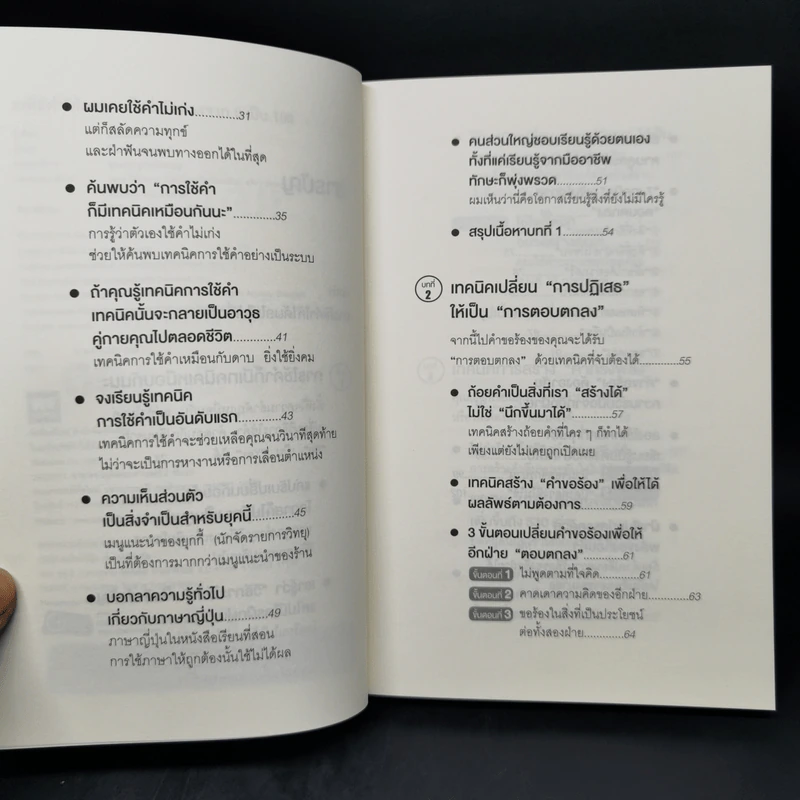 ● ผมเคยใช้คำไม่เก่ง............31
แต่ก็สลัดความทุกข์
และฝ่าฟันจนพบทางออกได้ในที่สุด
● ค้นพบว่า "การใช้คำ
ก็มีเทคนิคเหมือนกันนะ"............35
การรู้ว่าตัวเองใช้คำไม่เก่ง
ช่วยให้ค้นพบเทคนิคการใช้คำอย่างเป็นระบบ
● ถ้าคุณรู้เทคนิคการใช้คำ
เทคนิคนั้นจะกลายเป็นอาวุธ
คู่กายคุณไปตลอดชีวิต............41
เทคนิคการใช้คำเหมือนกับดาบ ยิ่งใช้ยิ่งคม
● จงเรียนรู้เทคนิค
การใช้คำเป็นอันดับแรก............43
เทคนิคการใช้คำจะช่วยเหลือคุณจนวินาทีสุดท้าย
ไม่ว่าจะเป็นการหางานหรือการเลื่อนตำแหน่ง
● ความเห็นส่วนตัว
เป็นสิ่งจำเป็นสำหรับยุคนี้............45
เมนูแนะนำของยุกกี้ (นักจัดรายการวิทยุ)
เป็นที่ต้องการมากกว่าเมนูแนะนำของร้าน
● บอกลาความรู้ทั่วไป
เกี่ยวกับภาษาญี่ปุ่น............49
ภาษาญี่ปุ่นในหนังสือเรียนที่สอน
การใช้ภาษาให้ถูกต้องนั้นใช้ไม่ได้ผล
● คนส่วนใหญ่ชอบเรียนรู้ด้วยตนเอง
ทั้งที่แค่เรียนรู้จากมืออาชีพ
ทักษะก็พุ่งพรวด............51
ผมเห็นว่านี่คือโอกาสเรียนรู้สิ่งที่ยังไม่มีใครรู้
● สรุปเนื้อหาบทที่ 1............54
บทที่ 2 เทคนิคเปลี่ยน "การปฏิเสธ"
ให้เป็น "การตอบตกลง"
จากนี้ไปคำขอร้องของคุณจะได้รับ
"การตอบตกลง" ด้วยเทคนิคที่จับต้องได้............55
● ถ้อยคำเป็นสิ่งที่เรา "สร้างได้"
ไม่ใช่ "นึกขึ้นมาได้"............57
เทคนิคสร้างถ้อยคำที่ใคร ๆ ก็ทำได้
เพียงแต่ยังไม่เคยถูกเปิดเผย
● เทคนิคสร้าง "คำขอร้อง" เพื่อให้ได้
ผลลัพธ์ตามต้องการ............59
● 3 ขั้นตอนเปลี่ยนคำขอร้องเพื่อให้
อีกฝ่าย "ตอบตกลง"............61
ขั้นตอนที่ 1 ไม่พูดตามที่ใจคิด............61
ขั้นตอนที่ 2 คาดเดาความคิดของอีกฝ่าย............63
ขั้นตอนที่ 3 ขอร้องในสิ่งที่เป็นประโยชน์
ต่อทั้งสองฝ่าย............64